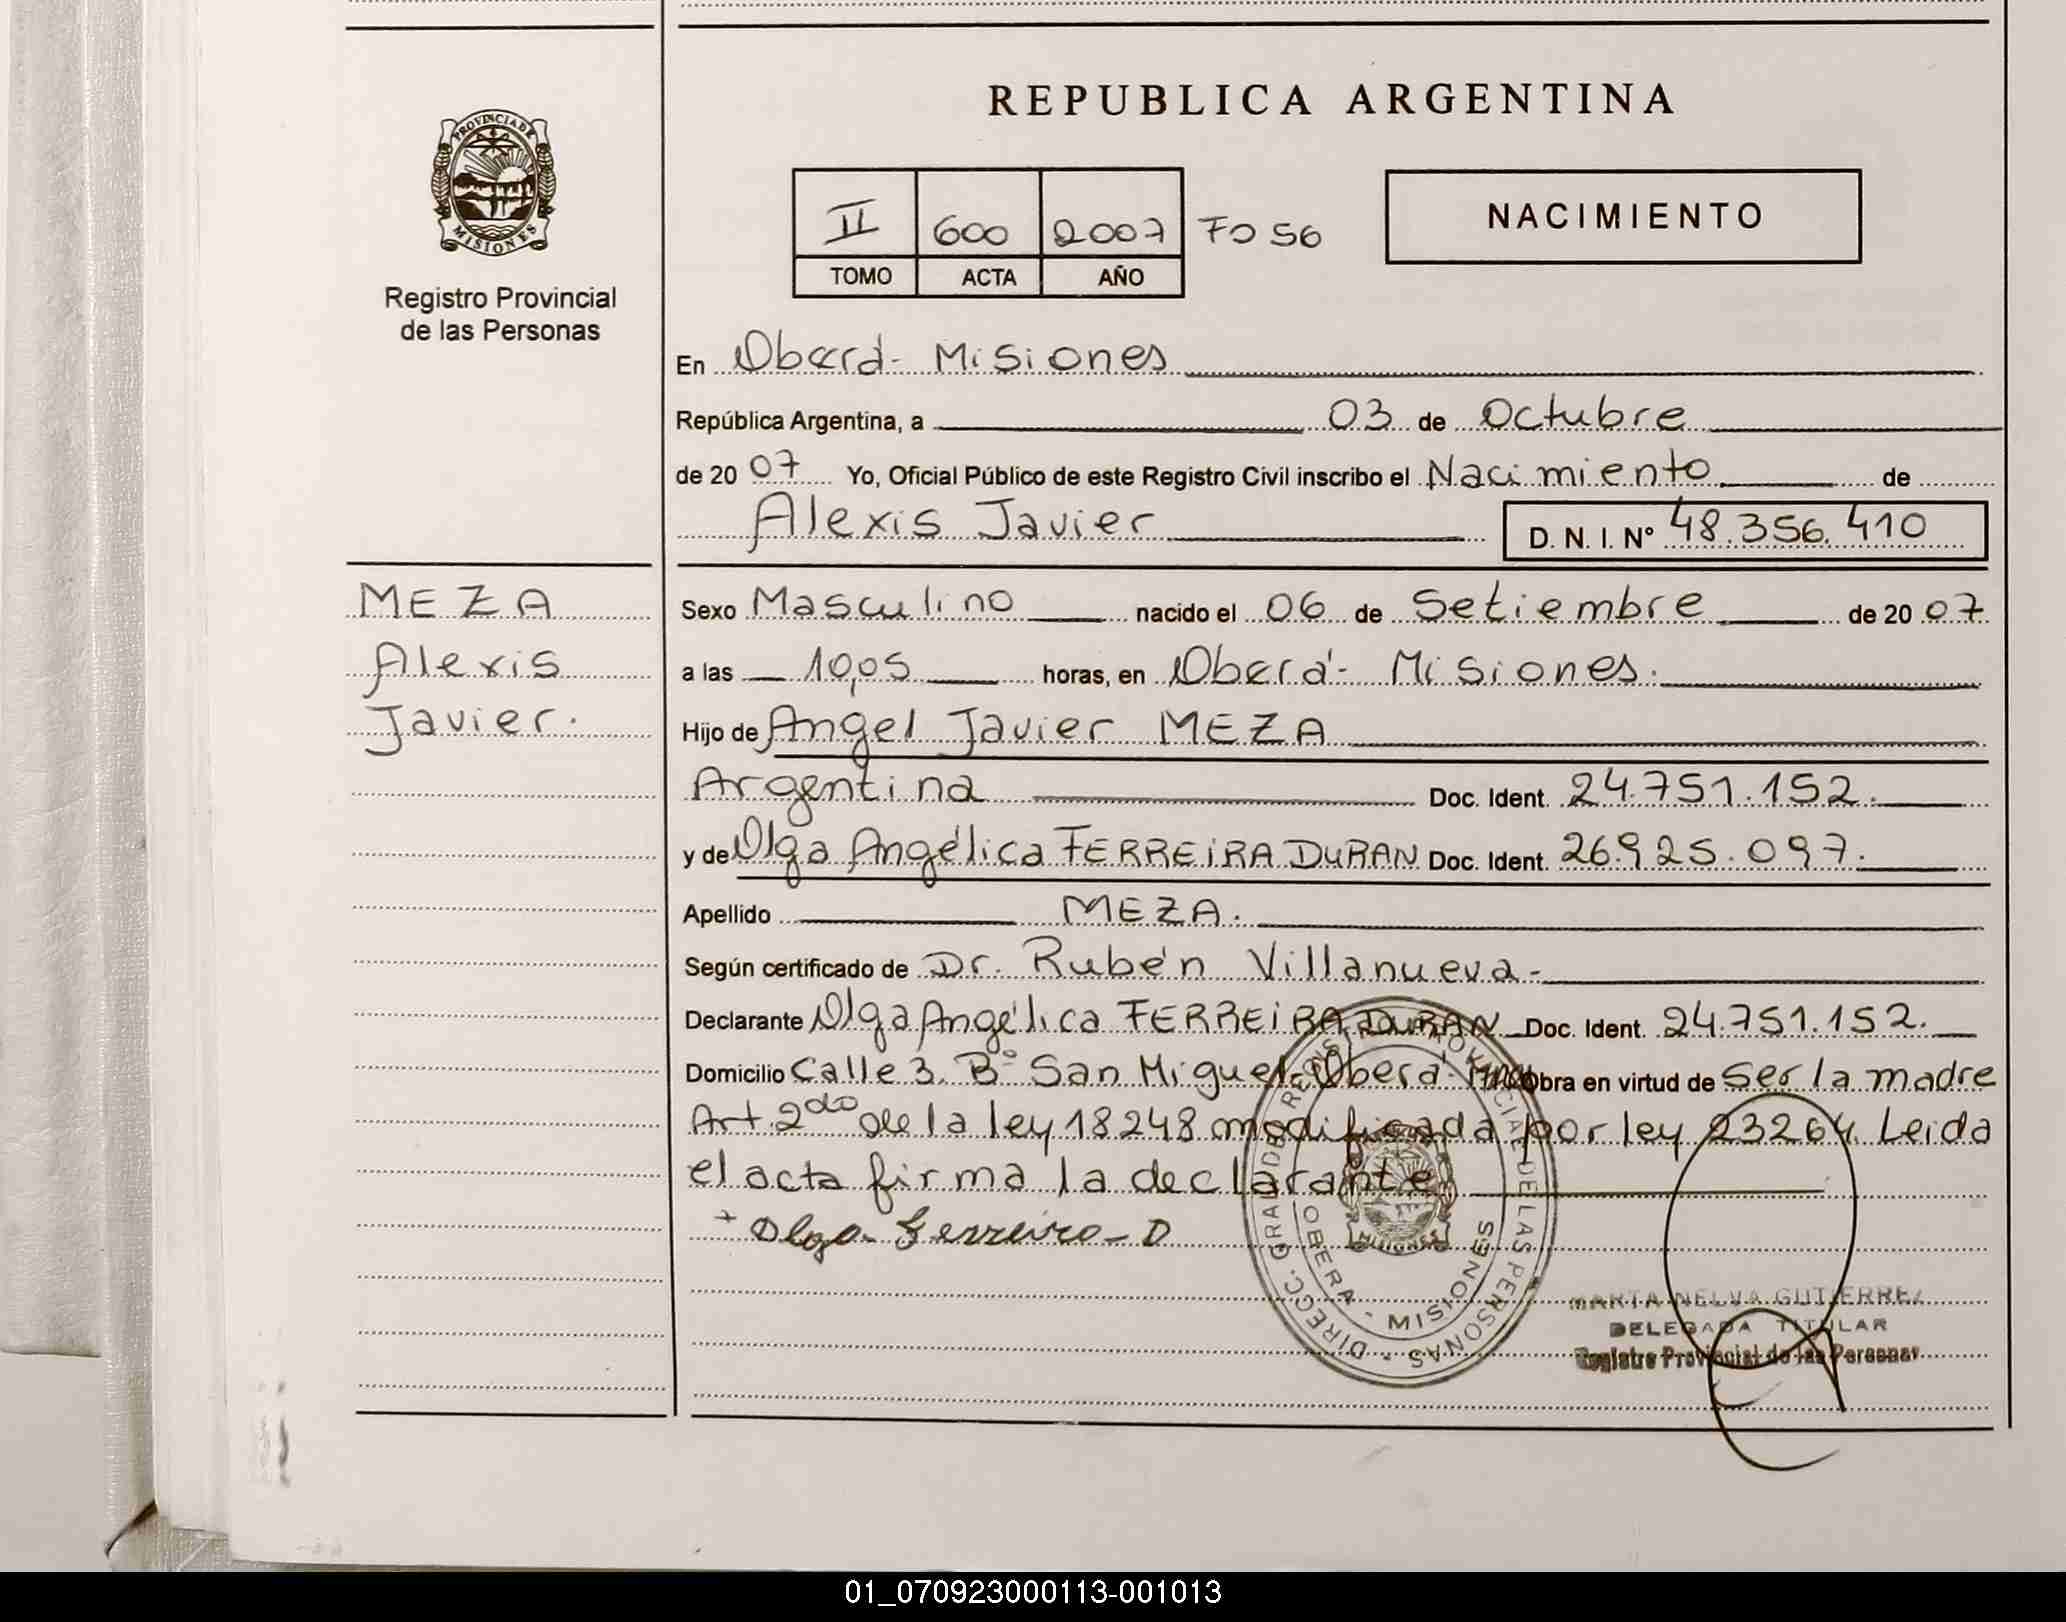 PROVINCIA DE
MISIONES
Registro Provincial
de las Personas
MEZA
Alexis
Javier.
REPUBLICA ARGENTINA
II 600 2007 Fo 56
TOMO ACTA AÑO
NACIMIENTO
En Oberá - Misiones
República Argentina, a 03 de Octubre
de 20 07 Yo, Oficial Público de este Registro Civil inscribo el Nacimiento de
Alexis Javier D. N. I. N° 48.356.410
Sexo Masculino nacido el 06 de Setiembre de 20 07
a las 10,05 horas, en Oberá - Misiones.
Hijo de Angel Javier MEZA
Argentina Doc. Ident. 24.751.152.
y de Olga Angélica FERREIRA DURAN Doc. Ident. 26.925.097.
Apellido MEZA.
Según certificado de Dr. Rubén Villanueva -
Declarante Olga Angélica FERREIRA DURAN Doc. Ident. 24.751.152.
Domicilio Calle 3. B° San Miguel - Oberá Obra en virtud de ser la madre
Art. 2do de la ley 18248 modificada por ley 23264. Leida
el acta firma la declarante
+ Olga Ferreira - D
OBERA - MISIONES
MARTA NELVA GUTIERREZ
DELEGADA TITULAR
Registro Provincial de las Personas
01_070923000113-001013